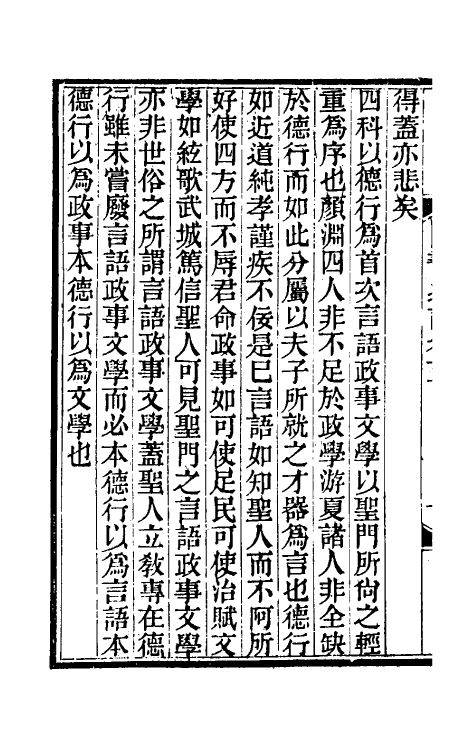 得蓋亦悲矣
四科以德行爲首次言語政事文學以聖門所尙之輕
重爲序也顏淵四人非不足於政學游夏諸人非全缺
於德行而如此分屬以夫子所就之才器爲言也德行
如近道純孝謹疾不佞是巳言語如知聖人而不阿所
好使四方而不辱君命政事如可使足民可使治賦文
學如絃歌武城篤信聖人可見聖門之言語政事文學
亦非世俗之所謂言語政事文學蓋聖人立敎專在德
行雖未嘗廢言語政事文學而必本德行以爲言語本
德行以爲政事本德行以爲文學也